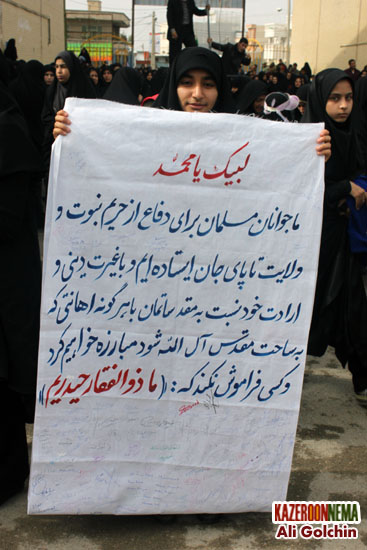 لبیک یا محمد
ما جوانان مسلمان برای دفاع از حریم نبوت و
ولایت تا پای جان ایستاده ایم و با غیرت دینی و
ارادت خود نسبت به مقدساتمان با هر گونه اهانتی که
به ساحت مقدس آل الله شود مبارزه خواهیم کرد
و کسی فراموش نکند که : (( ما ذوالفقار حیدریم ))
KAZEROONNEMA
Ali Golchin